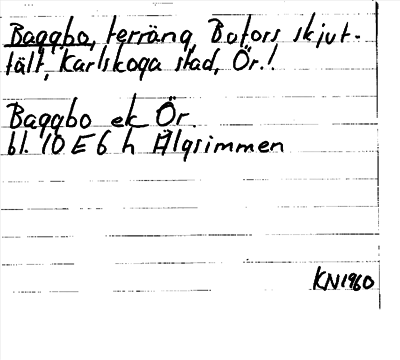 Baggbo, terräng, Bofors skjut-
fält, Karlskoga stad, Ör.!
Baggbo ek Ör.
bl. 10 E 6 h Älgsimmen
KN1960